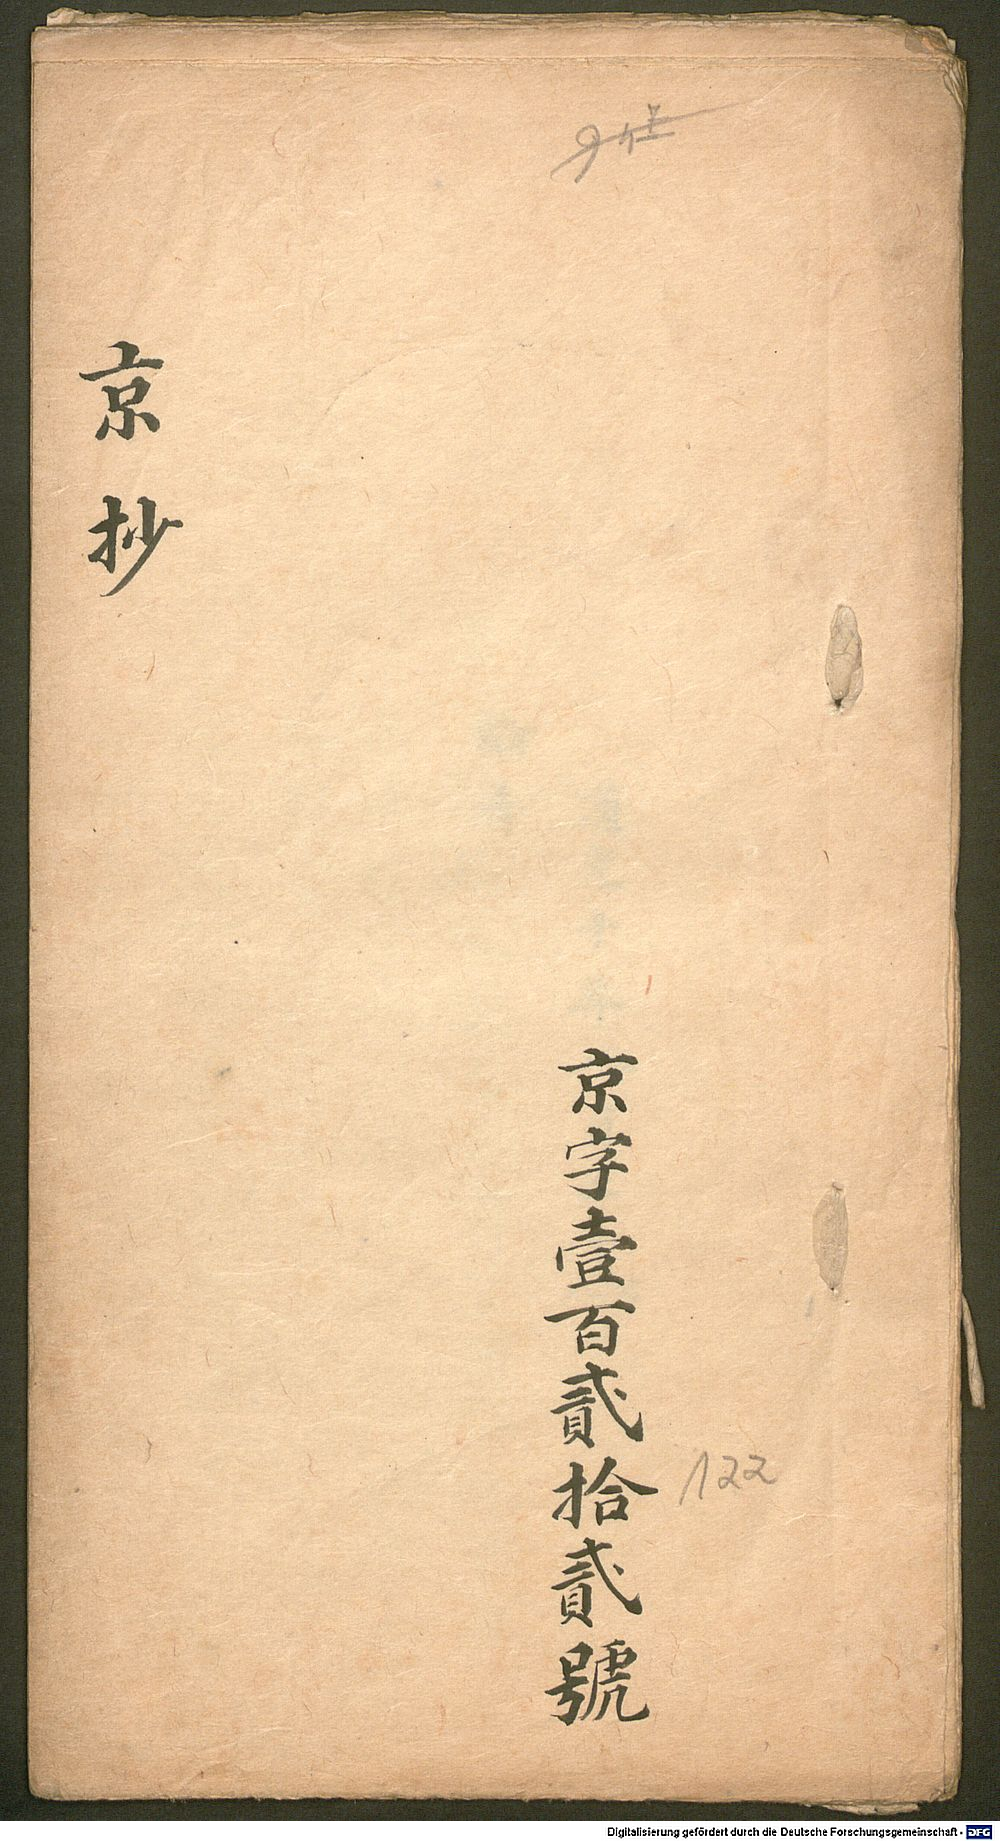 京字壹百貳拾貳號
122
京抄
Digitalisierung gefördert durch die Deutsche Forschungsgemeinschaft - DFG